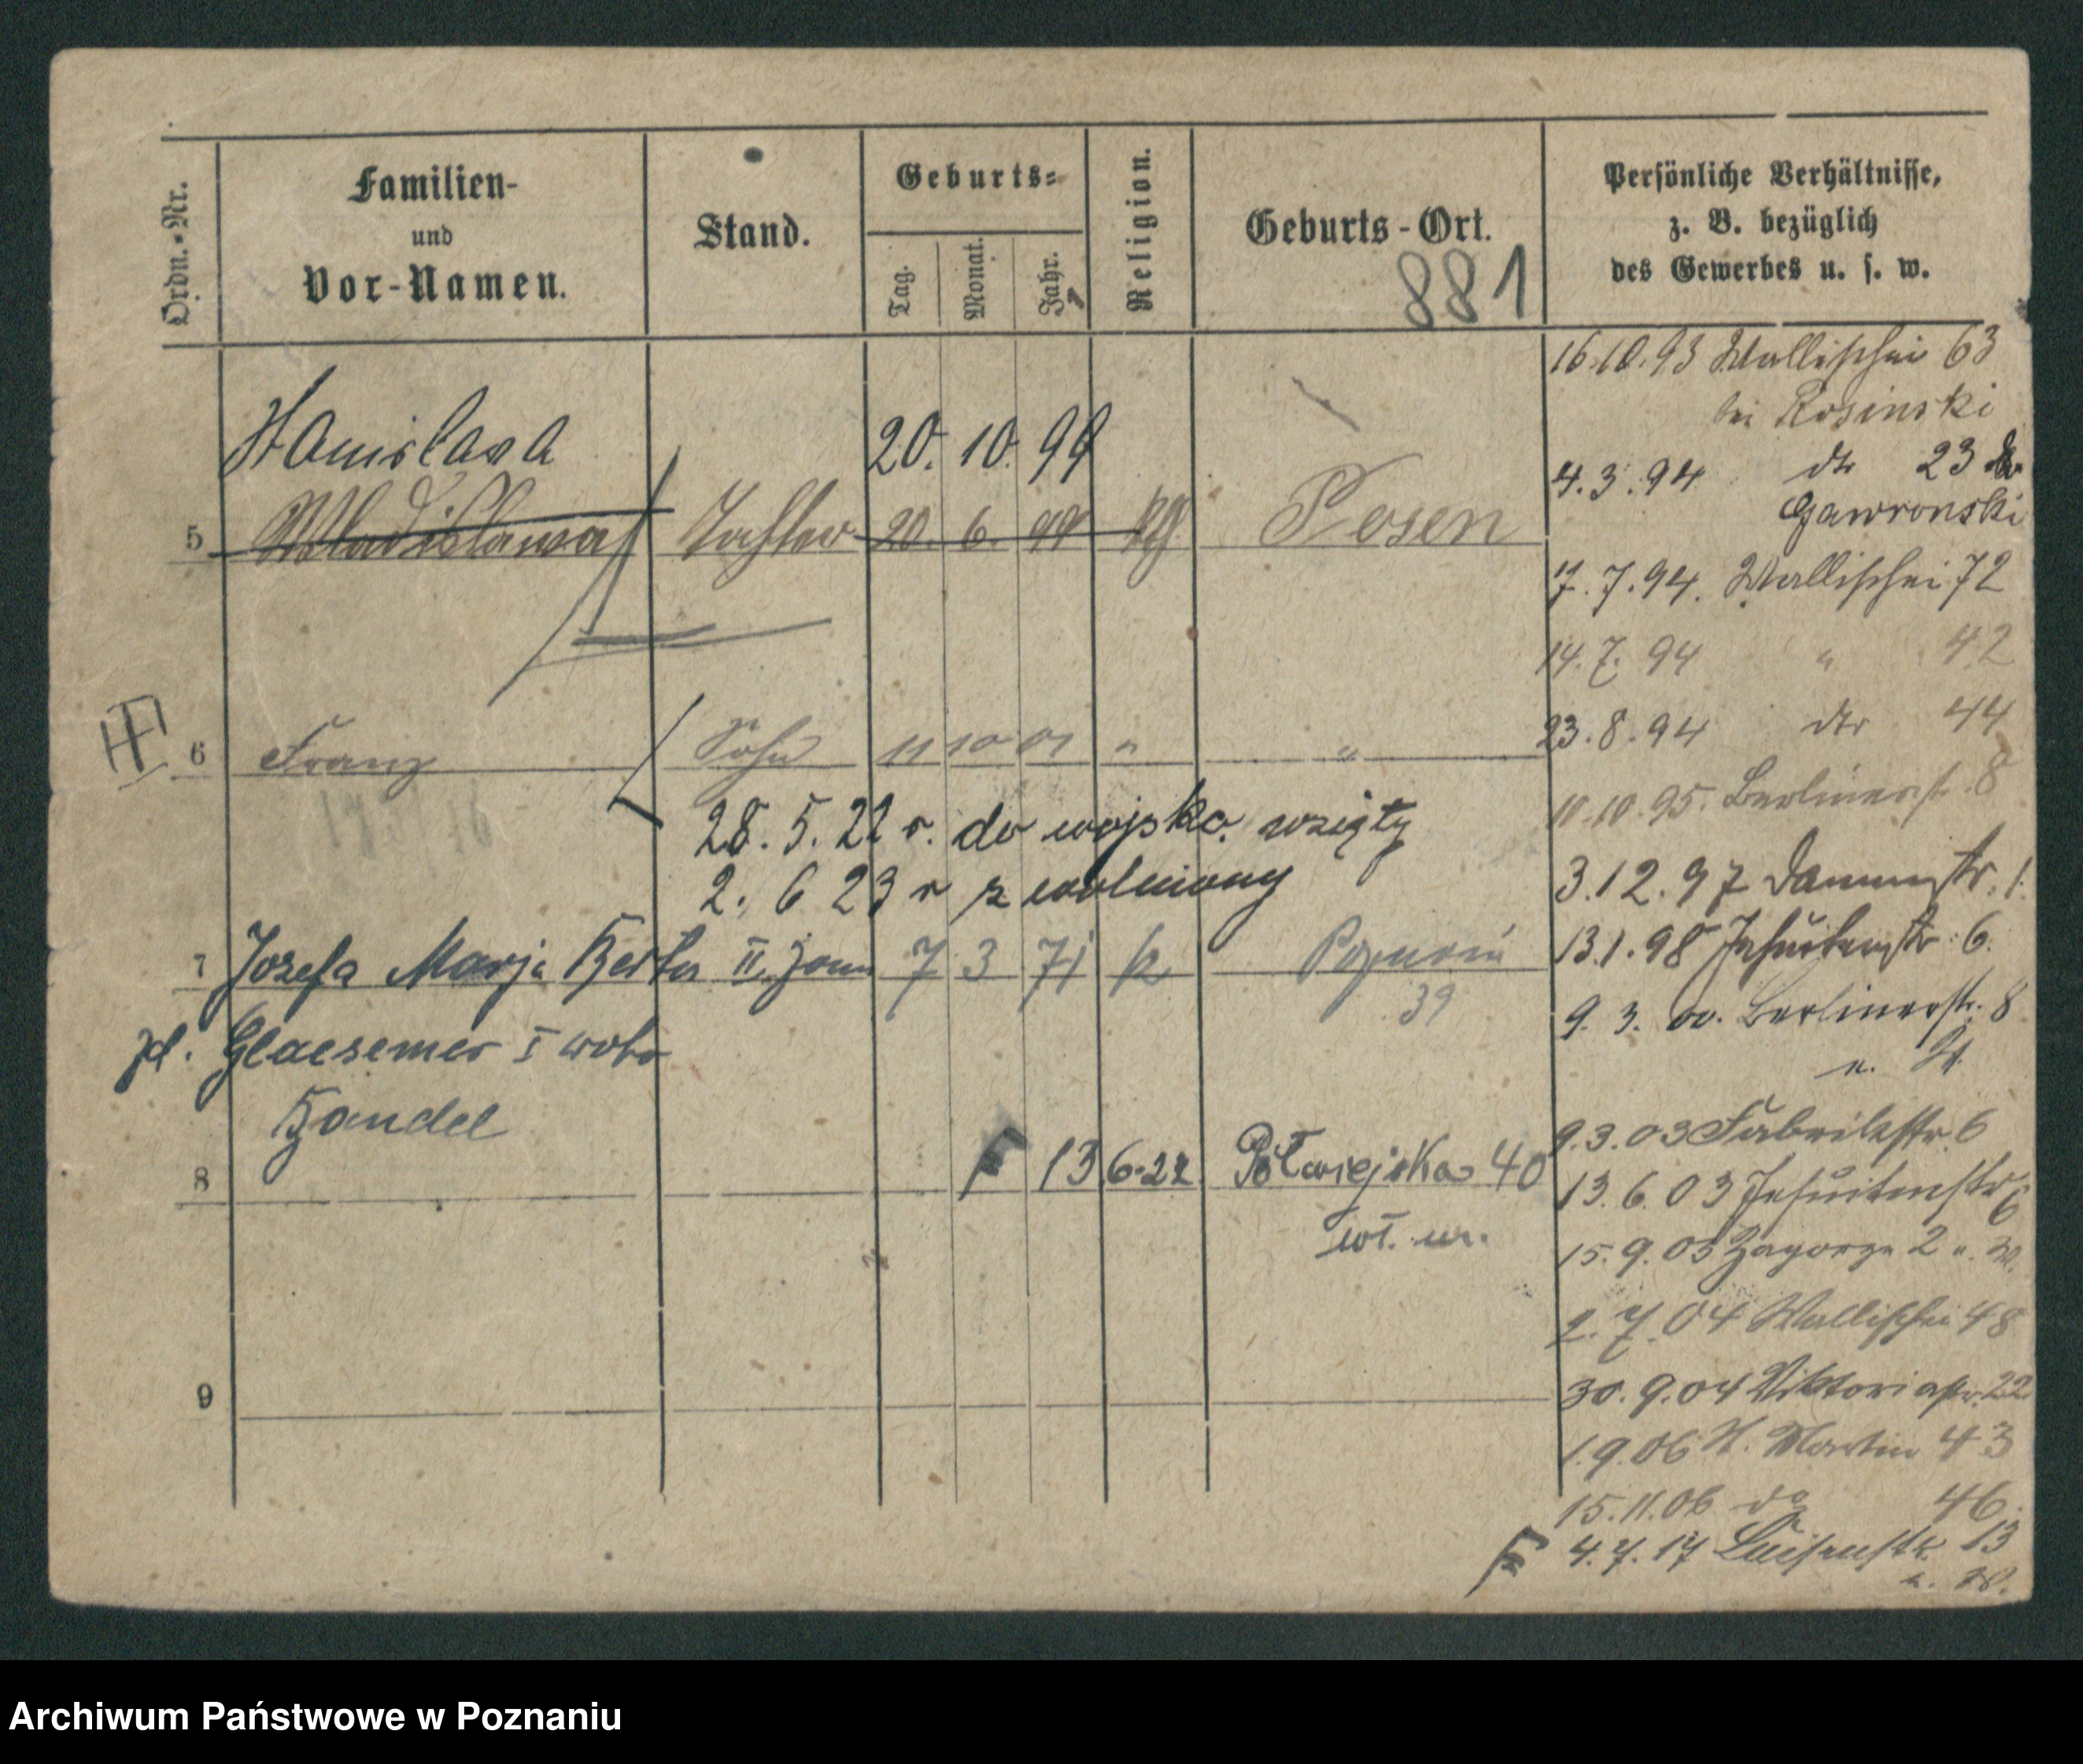 Ordn.-Nr.
Familien-
und
Vor-Namen.
Stand.
Geburts-
Tag.
Monat.
Jahr.
Religion.
Geburts-Ort.
881
Persönliche Verhältnisse,
z. B. bezüglich
des Gewerbes u. s. w.
Stanislava 20. 10. 99
5 Wladislawa Tochter 20. 6. 99 Posen
6 Franz Sohn 11 10 01 " "
28. 5. 22 r. do wojska wzięty
2. 6 23 r zwolniony
7 Jozefa Marja Berta II. żona 7 3 71 k Poznań
39
zd. Glaesemer I voto
Handel
8 F 13 6.22 Półwiejska 40
wł. m.
9
16.10.93 Wallischei 63
bei Rosinski
4.3.94 dto 23
Gawronski
7.94. Wallischei 72
14.7.94 " 42
23.8.94 dto 44
10.10.95. Berlinerstr. 8
3.12.97 Dammstr. 1.
13.1.98 Jesuitenstr. 6.
9.3.00. Berlinerstr. 8
u. W.
9.3.03 Fabrikstr. 6
13.6.03 Jesuitenstr 6
15.9.03 Zagorze 2 u. W.
2.7.04 Wallischei 48
30.9.04 Viktoriastr. 22
1.9.06 St. Martin 43
15.11.06 do 46.
F 4.7.17 Luisenstr. 13
u. W.
Archiwum Państwowe w Poznaniu